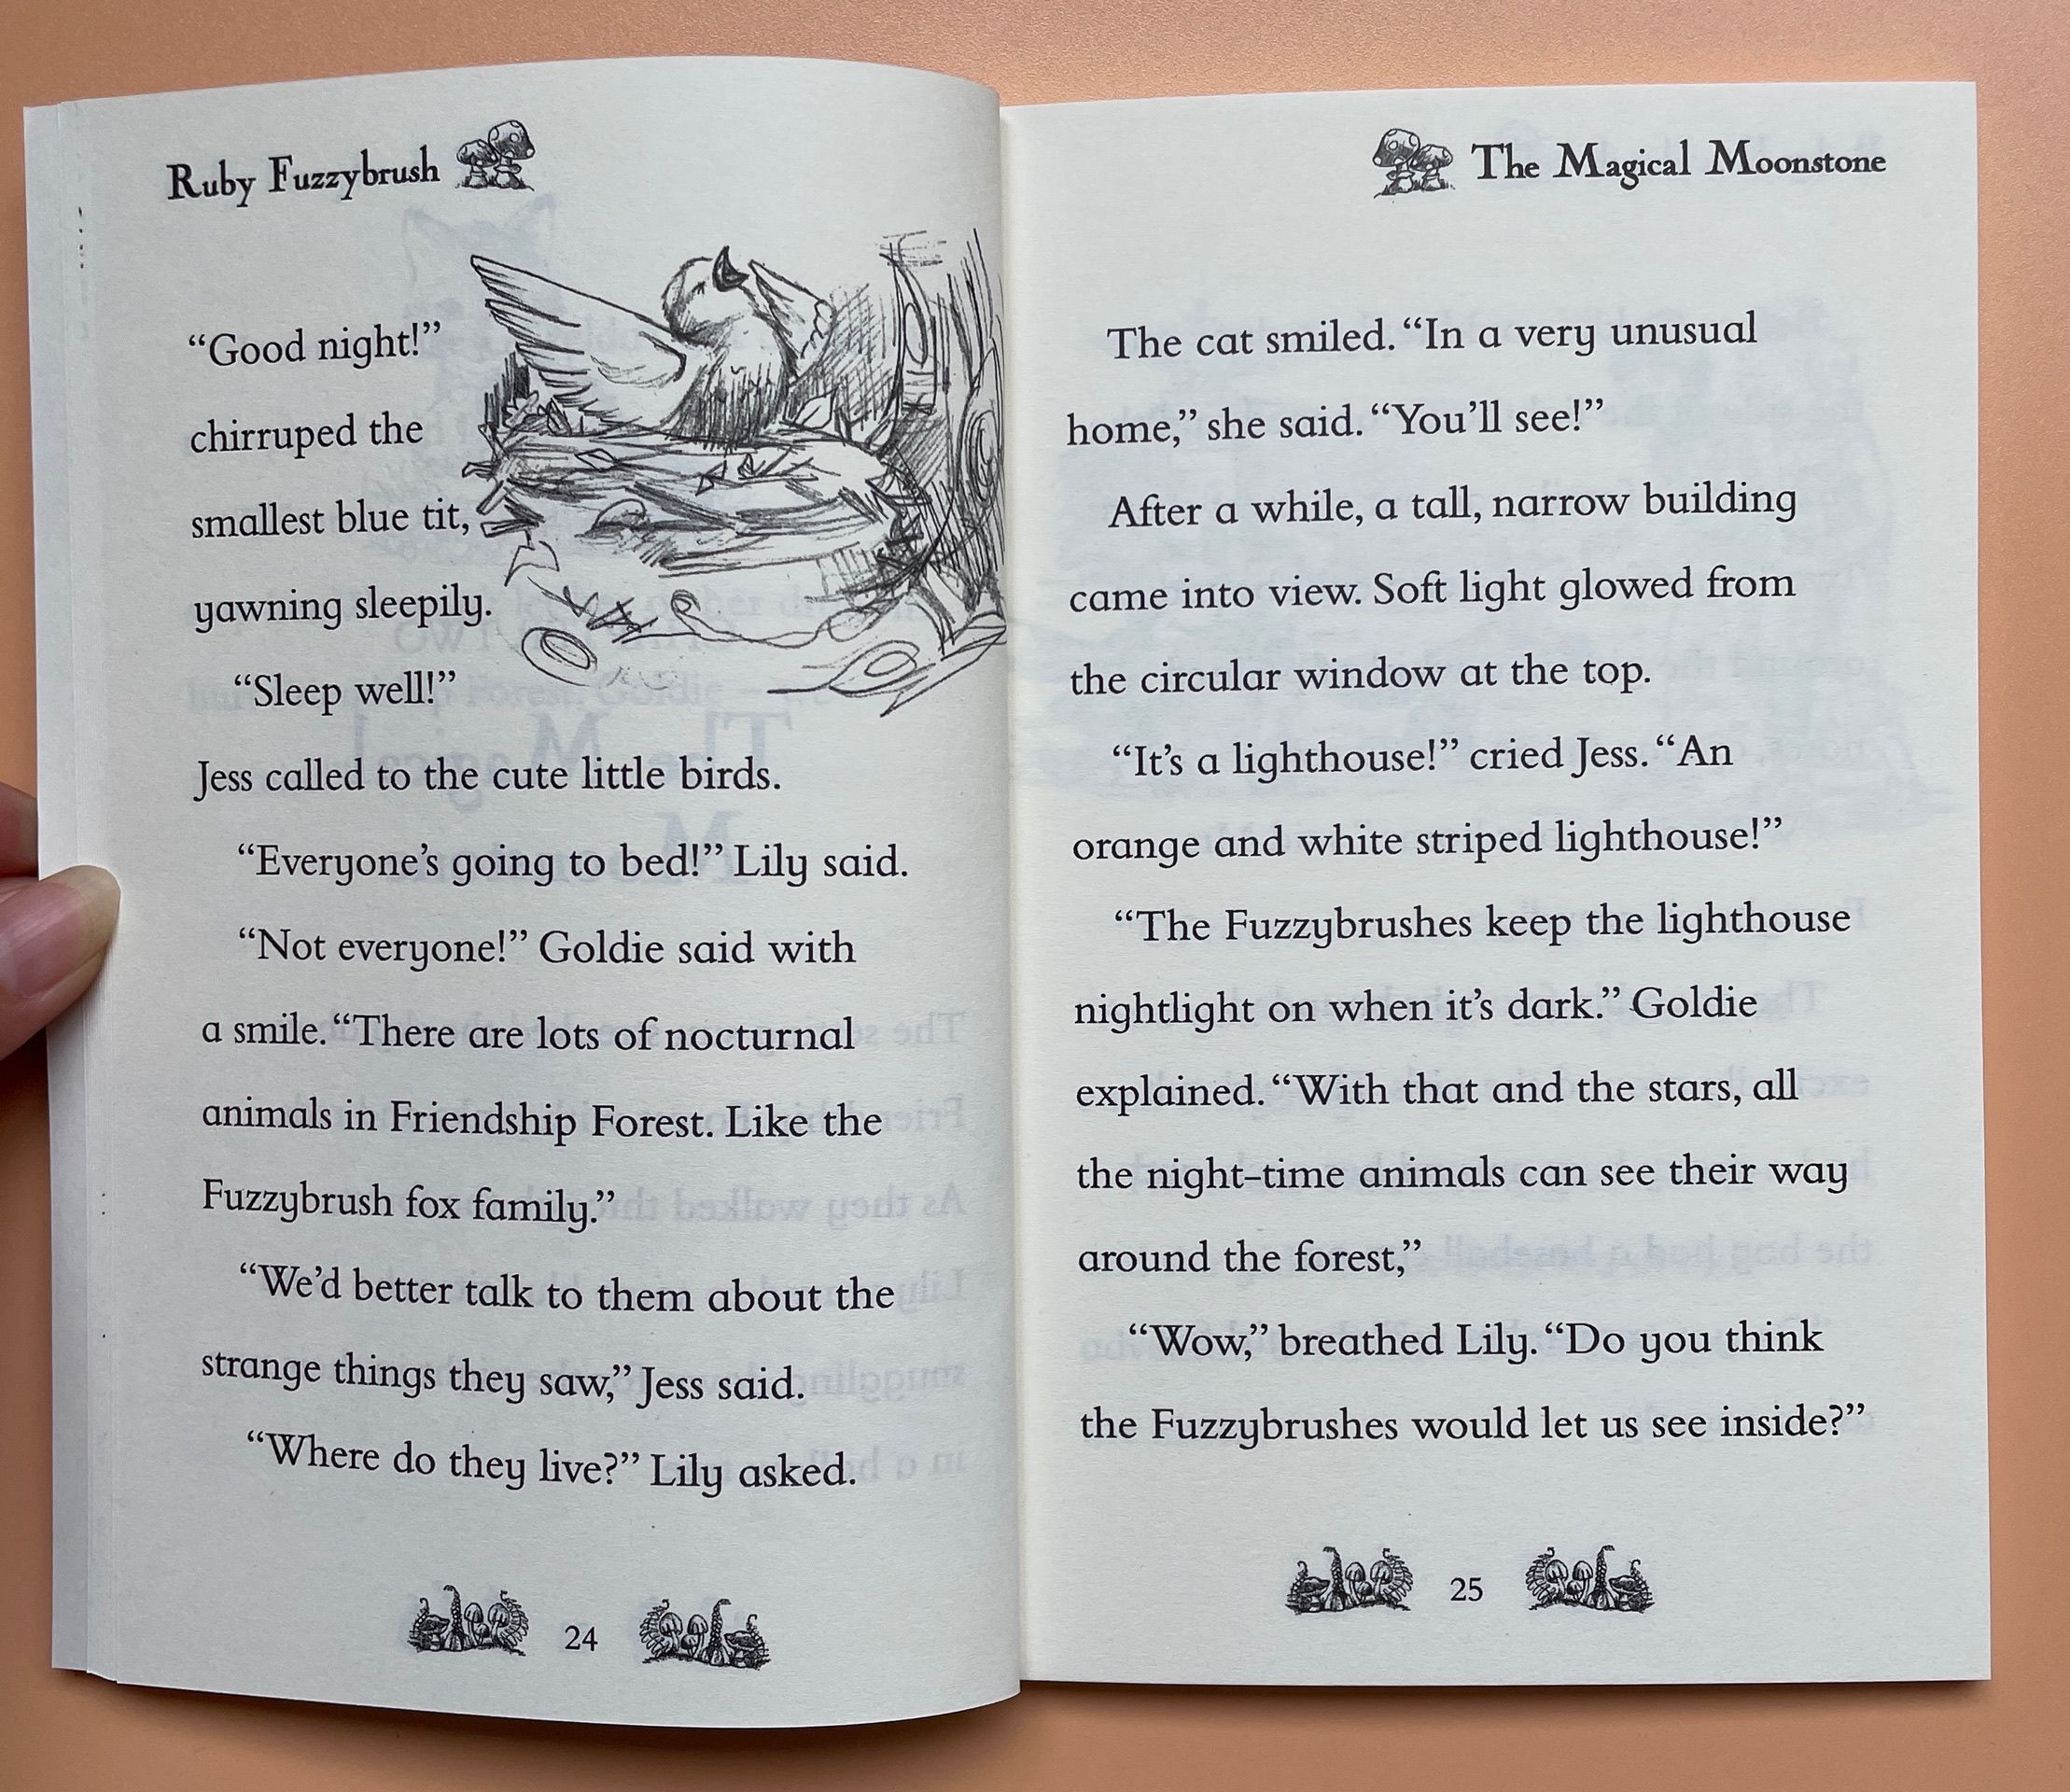 Ruby Fuzzybrush
“Good night!”
chirruped the
smallest blue tit,
yawning sleepily.
“Sleep well!”
Jess called to the cute little birds.
“Everyone’s going to bed!” Lily said.
“Not everyone!” Goldie said with
a smile. “There are lots of nocturnal
animals in Friendship Forest. Like the
Fuzzybrush fox family.”
“We’d better talk to them about the
strange things they saw,” Jess said.
“Where do they live?” Lily asked.
24
The Magical Moonstone
The cat smiled. “In a very unusual
home,” she said. “You’ll see!”
After a while, a tall, narrow building
came into view. Soft light glowed from
the circular window at the top.
“It’s a lighthouse!” cried Jess. “An
orange and white striped lighthouse!”
“The Fuzzybrushes keep the lighthouse
nightlight on when it’s dark.” Goldie
explained. “With that and the stars, all
the night-time animals can see their way
around the forest,”
“Wow,” breathed Lily. “Do you think
the Fuzzybrushes would let us see inside?”
25